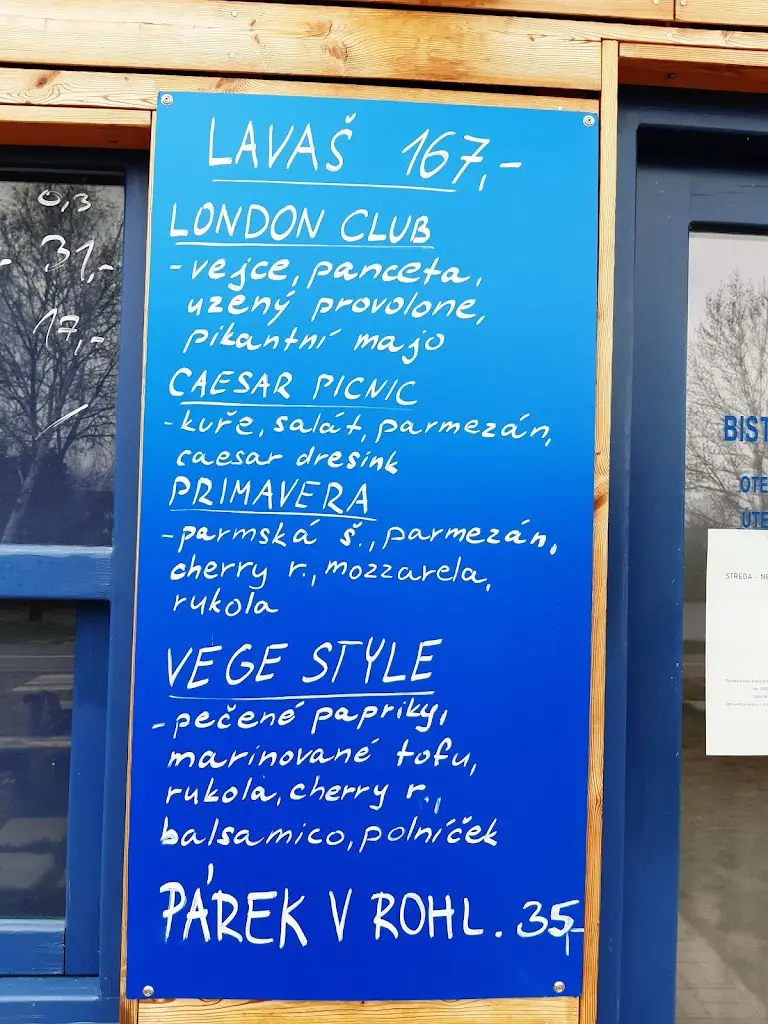 LAVAŠ 167,-
LONDON CLUB
- vejce, panceta,
uzený provolone,
pikantní majo
CAESAR PICNIC
- kuře, salát, parmezán,
caesar dresink
PRIMAVERA
- parmská š., parmezán,
cherry r., mozzarela,
rukola
VEGE STYLE
- pečené papriky,
marinované tofu,
rukola, cherry r.,
balsamico, polníček
PÁREK V ROHL. 35,-
0,3
- 31,-
17,-
BIST
OTE
ÚTE
STŘEDA – NE